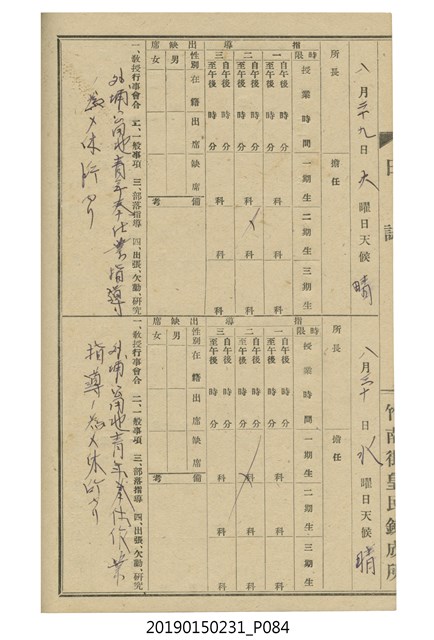 八月二十九日 火曜日 天候 晴
所長
擔任
指導
時限 授業時間 一期生 二期生 三期生
一 自午後 時 分 至午後 時 分 科 科 科
二 自午後 時 分 至午後 時 分 科 科 科
三 自午後 時 分 至午後 時 分 科 科 科
出缺席
性別 在籍 出席 缺席 備考
男
女
一、教授行事會合 二、一般事項 三、部落指導 四、出張、欠勤、研究
外埔 地青年奉仕作業指導
為メ休所ス
日誌
八月三十日 水曜日 天候 晴
所長
擔任
指導
時限 授業時間 一期生 二期生 三期生
一 自午後 時 分 至午後 時 分 科 科 科
二 自午後 時 分 至午後 時 分 科 科 科
三 自午後 時 分 至午後 時 分 科 科 科
出缺席
性別 在籍 出席 缺席 備考
男
女
一、教授行事會合 二、一般事項 三、部落指導 四、出張、欠勤、研究
外埔 地青年奉仕作業
指導ノ為メ休所ス
竹南街皇民鍊成所
20190150231_P084